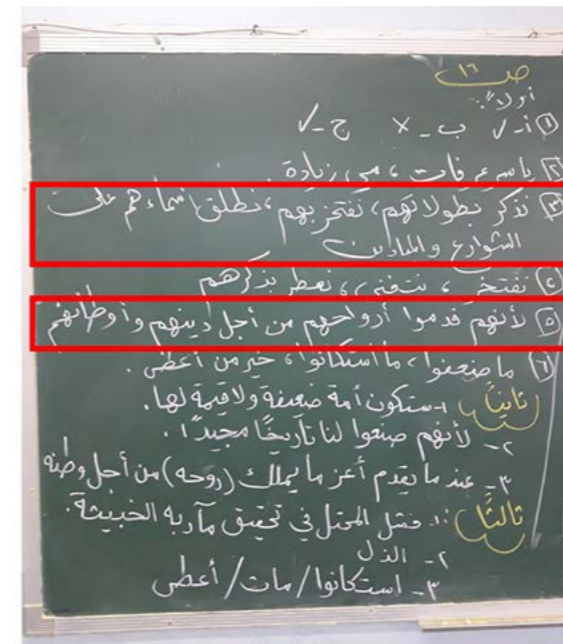 ص ١٦
أولاً:
① أ- ✓ ب - × ج - ✓
② ياسر عرفات ، مي زيادة .
③ نذكر بطولاتهم، نفتخر بهم ، نطلق أسماءهم على
الشوارع والميادين
④ نفتخر ، نتغنى ، نعطر بذكرهم
⑤ لأنهم قدموا أرواحهم من أجل دينهم وأوطانهم
⑥ ما ضعفوا ، ما استكانوا ، خير من أعطى .
ثانياً ١- ستكون أمة ضعيفة ولا قيمة لها .
٢- لأنهم صنعوا لنا تاريخًا مجيدًا .
٣- عندما يقدم أعز ما يملك (روحه) من أجل وطنه
ثالثًا : ١- فشل المحتل في تحقيق مآربه الخبيثة .
٢- الذل
٣- استكانوا / مات / أعطى